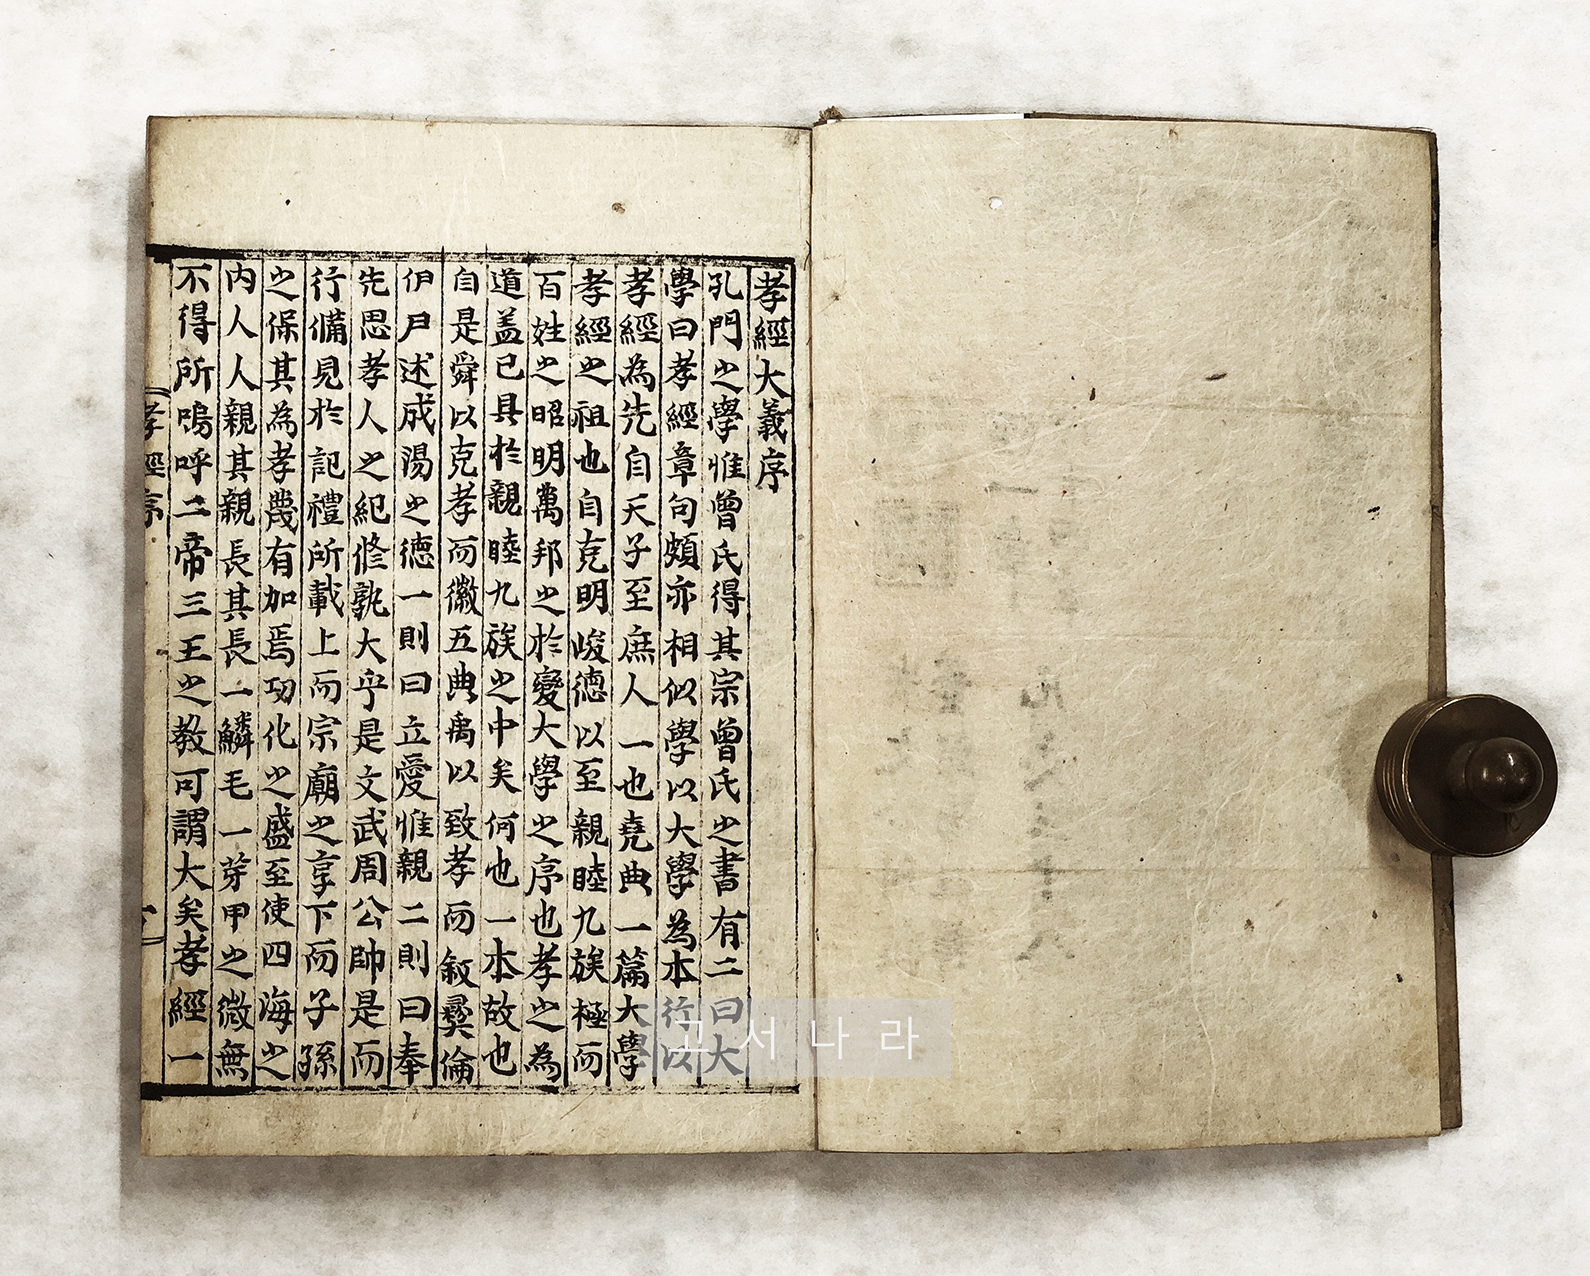 孝經大義序
孔門之學惟曾氏得其宗曾氏之書有二曰大
學曰孝經經章句頗亦相似學以大學為本行以
孝經為先自天子至庶人一也堯典一篇大學
孝經之祖也自克明峻德以至親睦九族極而
百姓之昭明萬邦之於變大學之序也孝之為
道盖已具於親睦九族之中矣何也一本故也
自是舜以克孝而徽五典禹以致孝而敍彜倫
伊尹述成湯之德一則曰立愛惟親二則曰奉
先思孝人之紀修孰大乎是文武周公帥是而
行備見於記禮所載上而宗廟之享下而子孫
之保其為孝蔑有加焉功化之盛至使四海之
內人人親其親長其長一鱗毛一芽甲之微無
不得所嗚呼二帝三王之教可謂大矣孝經一
孝經序
고서나라